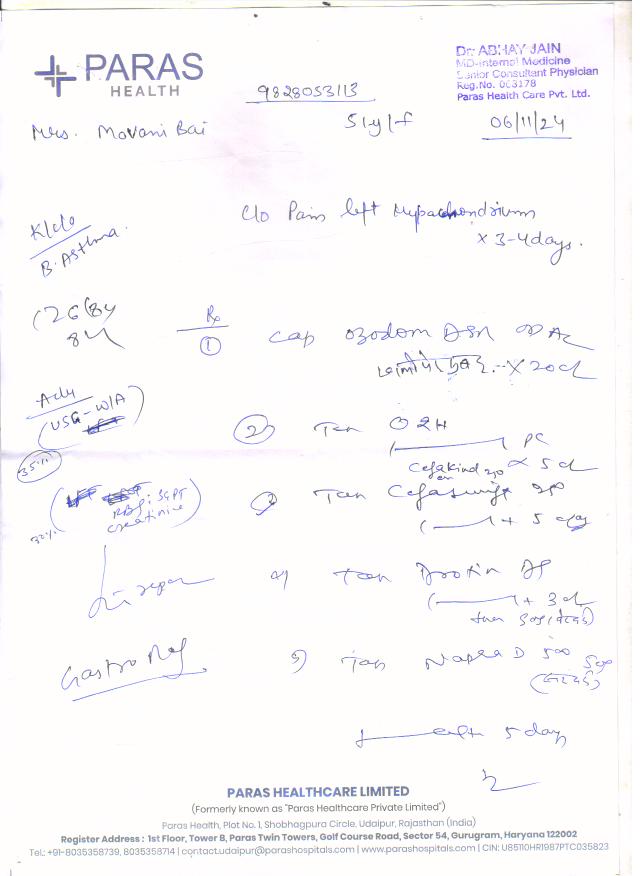 PARAS
HEALTH
Dr. ABHAY JAIN
MD-Internal Medicine
Senior Consultant Physician
Reg. No. 003178
Paras Health Care Pvt. Ltd.
9828053113
Mrs. Movani Bai
51y/f
06/11/24
K/c/o
B. Asthma.
C/o Pain left Hypochondrium
x 3-4 days.
126/84
84
Rx
① Cap Ozodom DSR
x 20d
Adv
(USG - W/A)
② Tab O2H
PC
x 5d
35%
Cefakind
Tab Cefaswift
+ 5 day
RBS; SGPT
creatinine
4) Tab Drotin DS
+ 3d
Gastro Ref
5) Tab Napra D 500
5 day
PARAS HEALTHCARE LIMITED
(Formerly known as "Paras Healthcare Private Limited")
Paras Health, Plot No. 1, Shobhagpura Circle, Udaipur, Rajasthan (India)
Register Address : 1st Floor, Tower B, Paras Twin Towers, Golf Course Road, Sector 54, Gurugram, Haryana 122002
Tel.: +91-8035358739, 8035358714 | contact.udaipur@parashospitals.com | www.parashospitals.com | CIN: U85110HR1987PTC035823